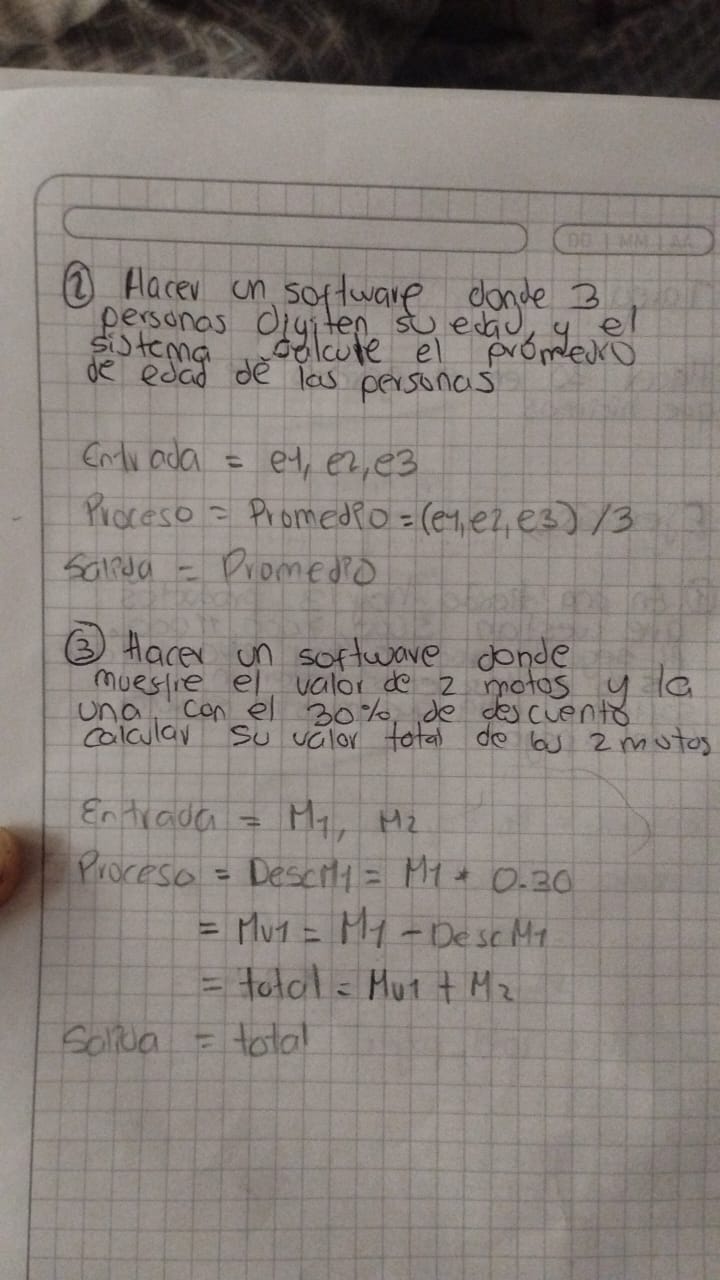 DD MM AA
② Hacer un software donde 3
personas digiten su edad, y el
sistema calcule el promedio
de edad de las personas
Entrada = e1, e2, e3
Proceso = Promedio = (e1, e2, e3) / 3
Salida = Promedio
③ Hacer un software donde
muestre el valor de 2 motos y la
una con el 30% de descuento
calcular su valor total de las 2 motos
Entrada = M1, M2
Proceso = DescM1 = M1 * 0.30
= Mv1 = M1 - DescM1
= total = Mv1 + M2
Salida = total